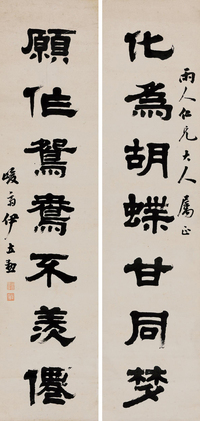 雨人仁兄大人属正
化為胡蝶甘同梦
願作鴛鴦不羨僊
峻斋伊立勳